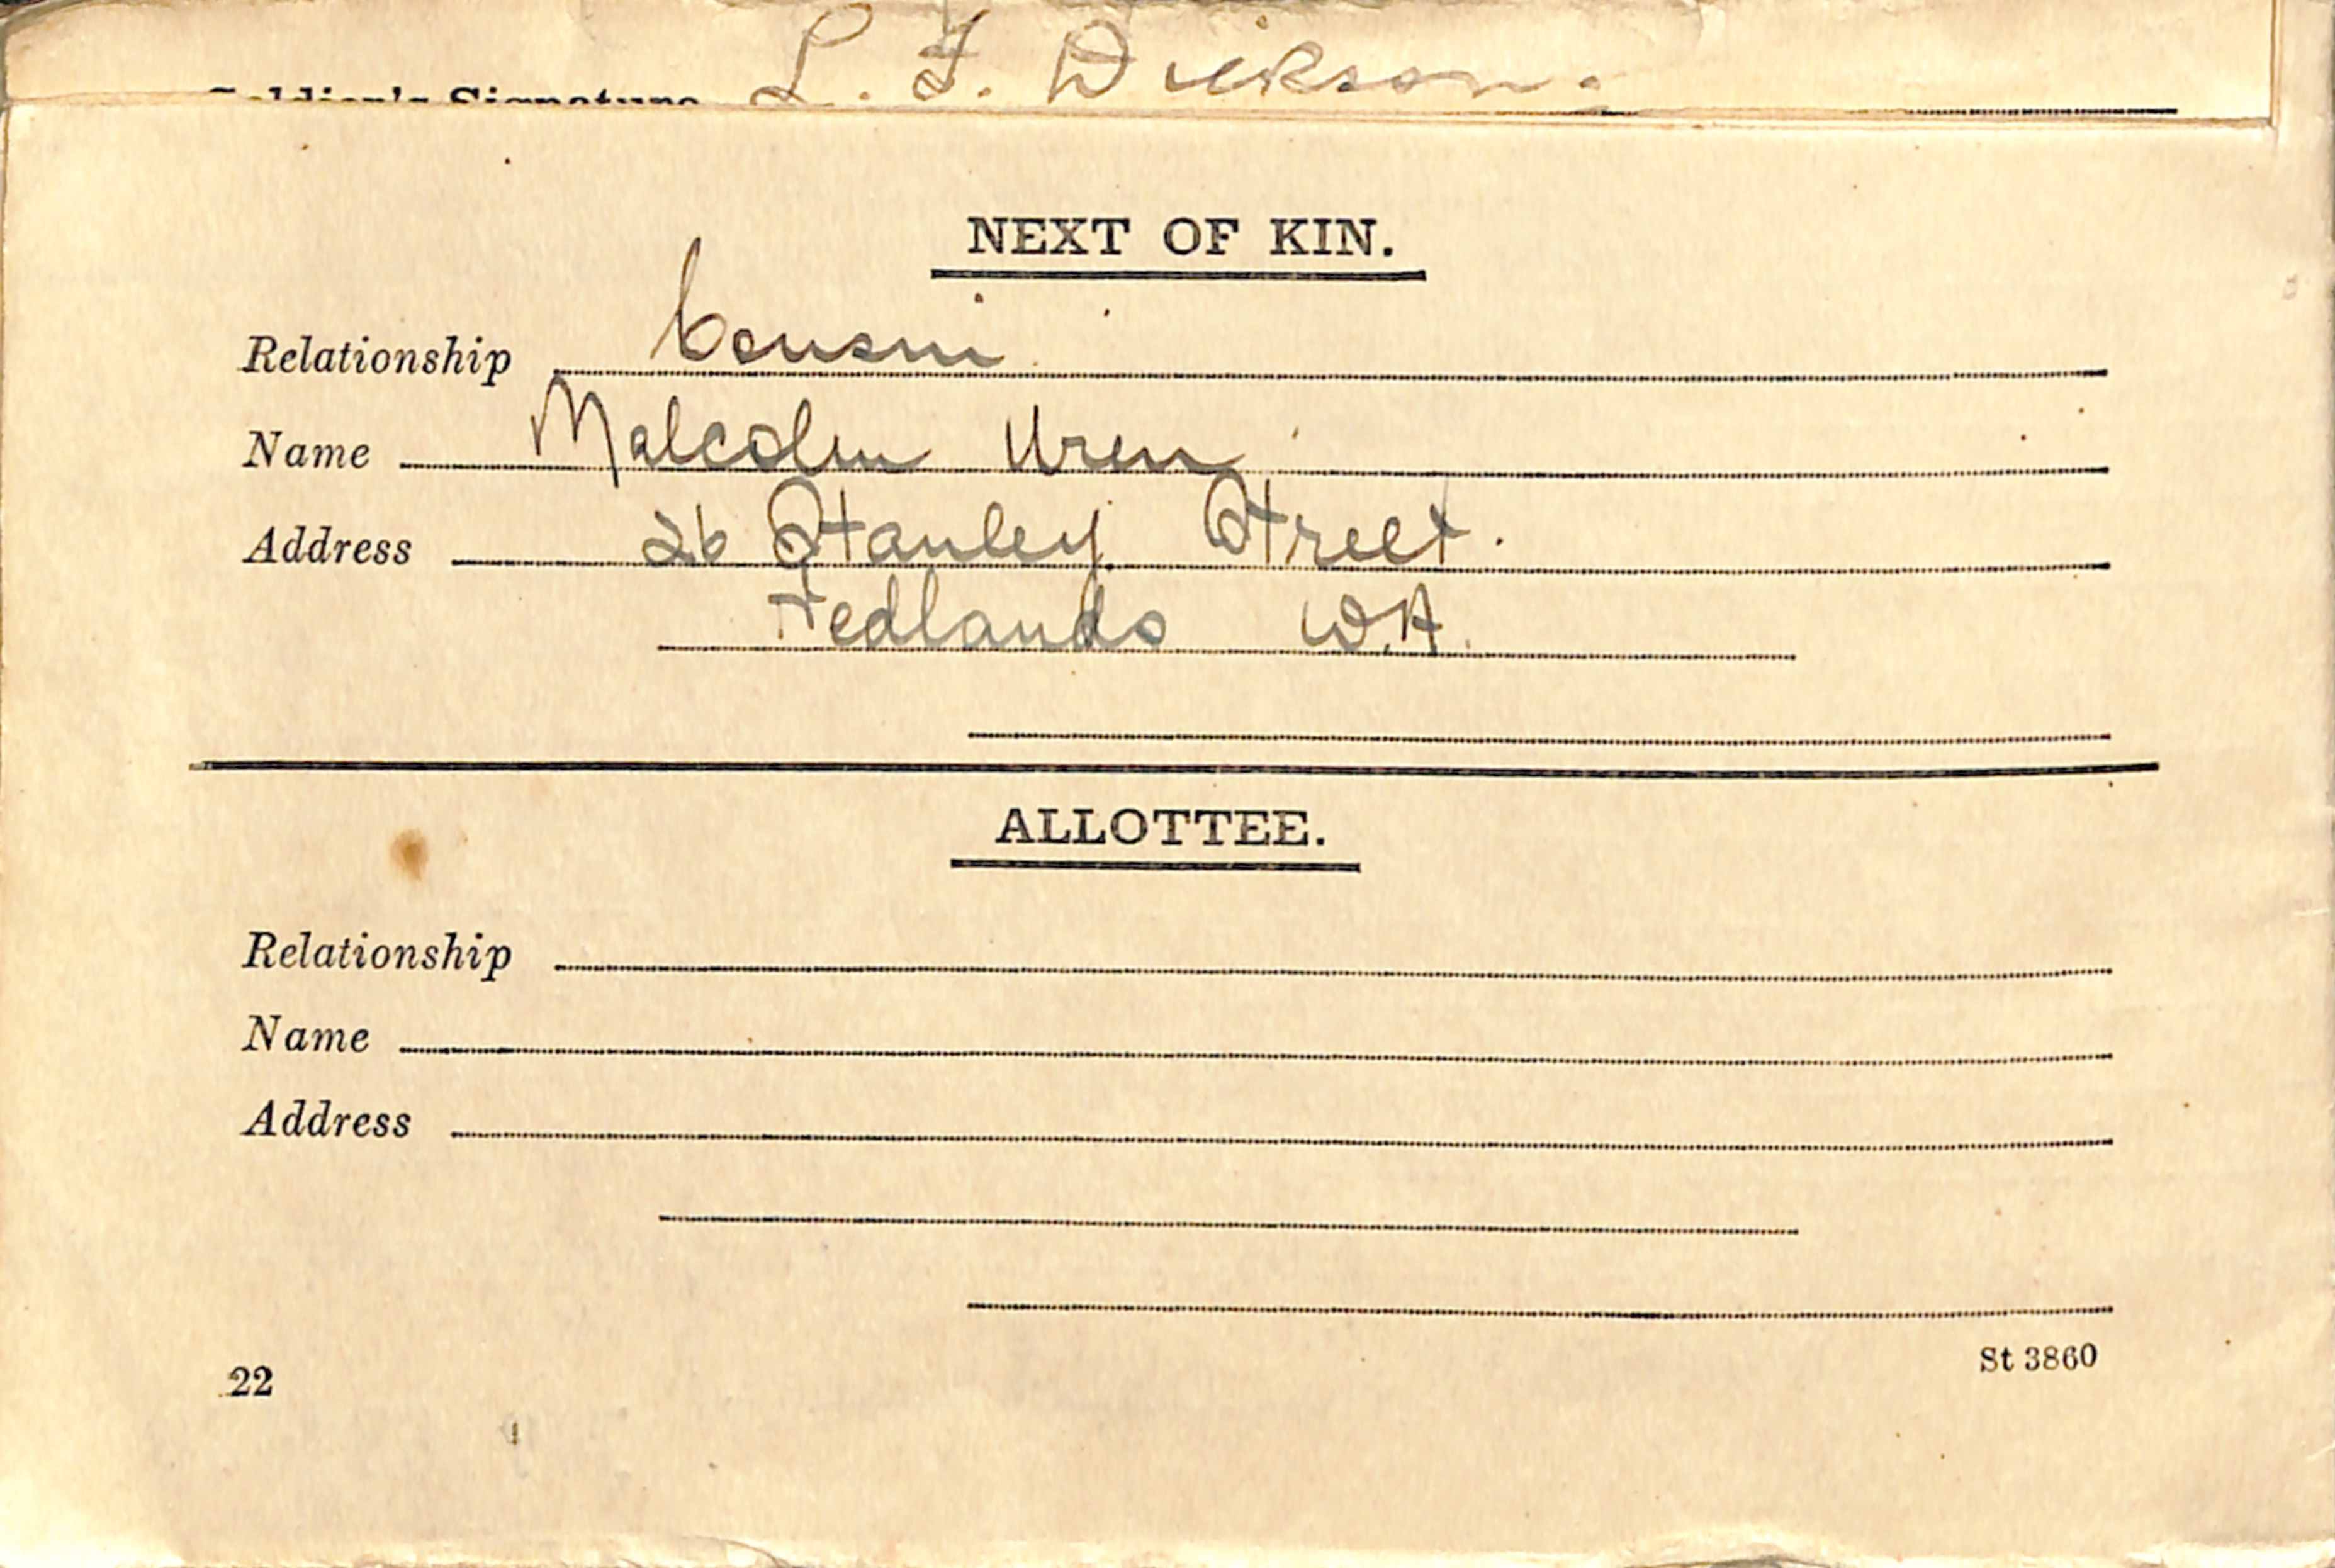 Soldier's Signature L. F. Dickson.
NEXT OF KIN.
Relationship Cousin
Name Malcolm Uren
Address 26 Stanley Street.
Nedlands W.A.
ALLOTTEE.
Relationship
Name
Address
22
St 3860